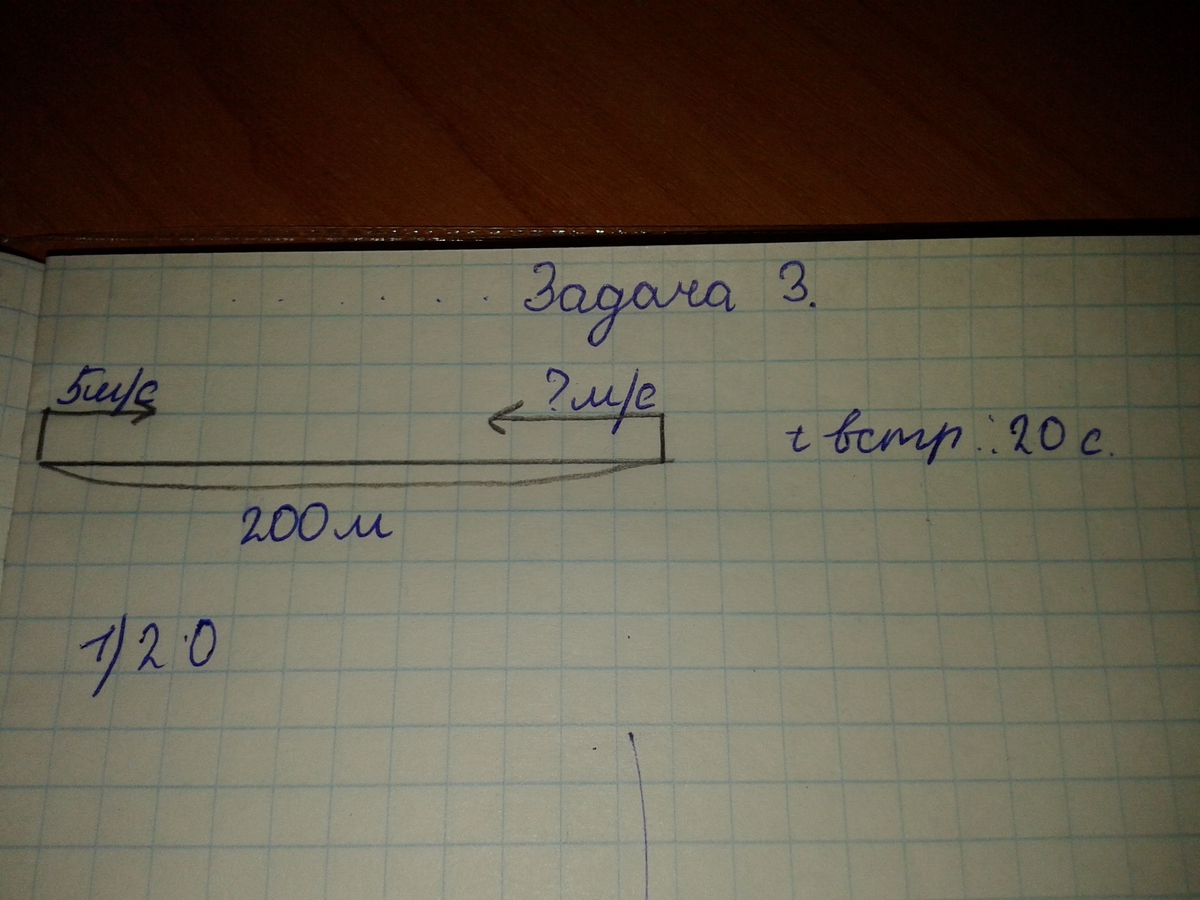 Задача 3.
5м/с ?м/с
t встр.: 20 с.
200м
1) 2 0